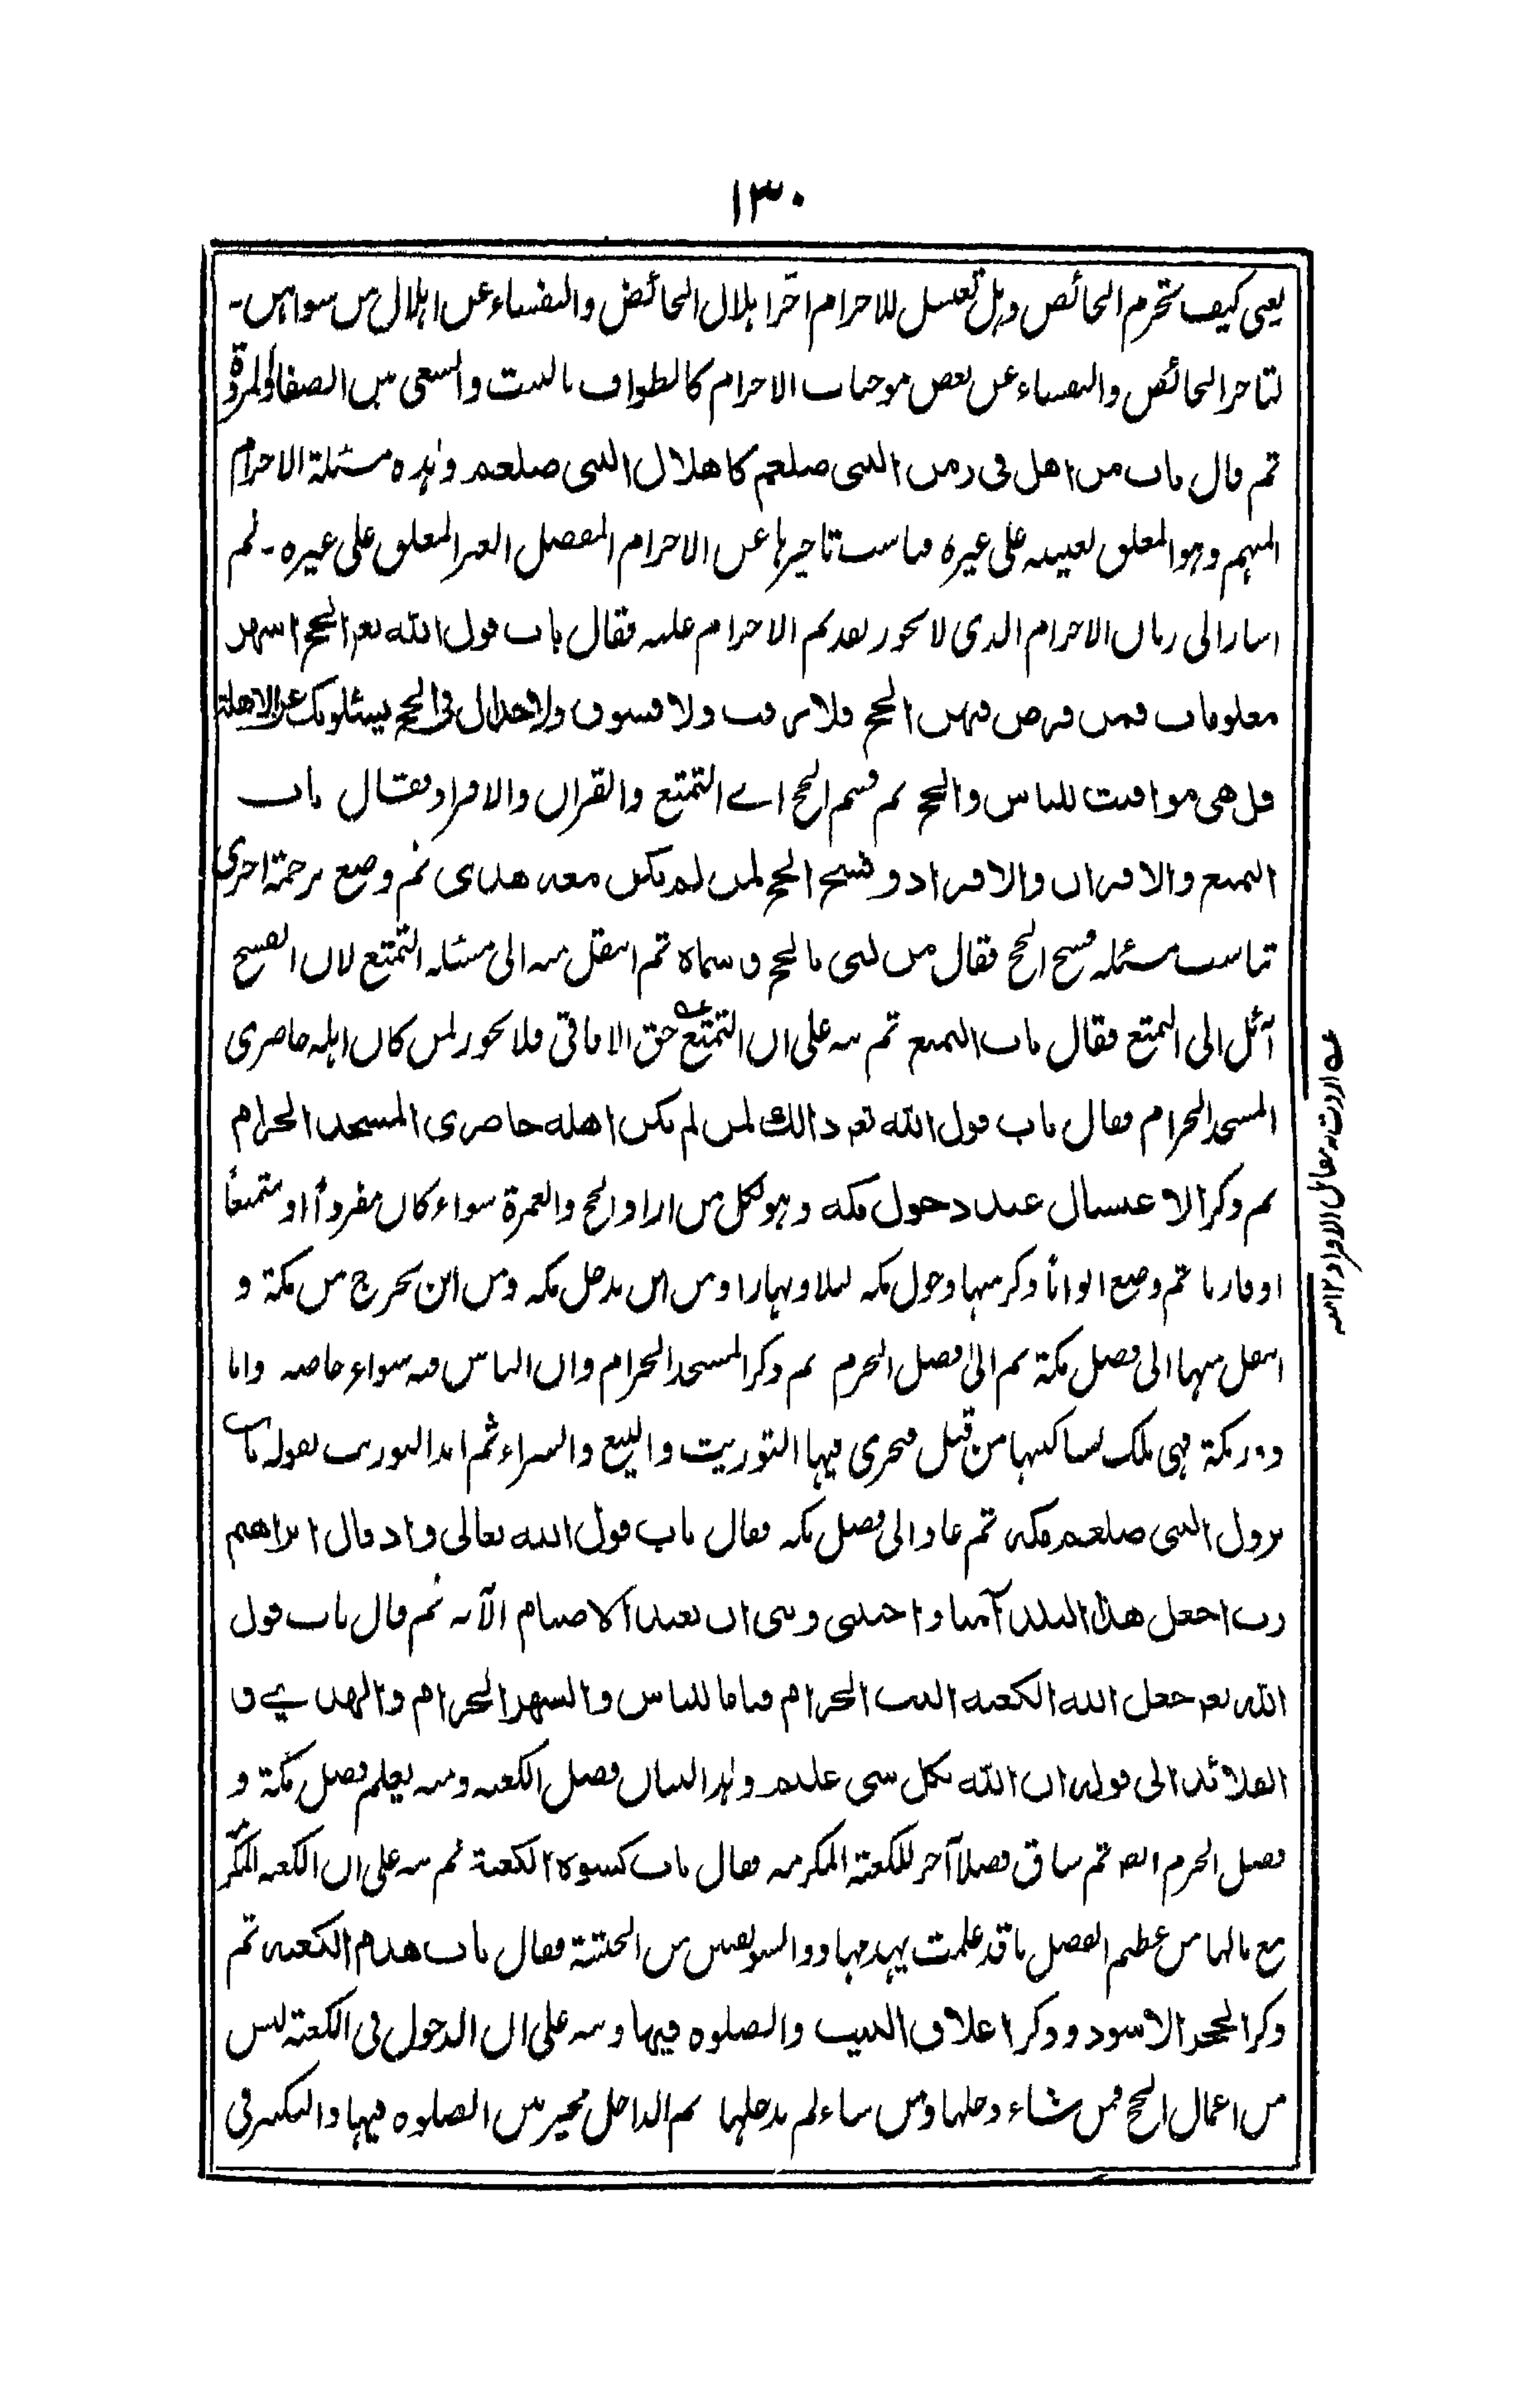 ١٣٠
يعنى كيف تحرم الحائض وہل تغتسل للاحرام اخّر اہلال الحائض والنفساء عن اہلال من سواہن۔
لتاخر الحائض والنفساء عن بعض موجبات الاحرام كالطواف بالبيت والسعى بين الصفا والمروة
ثم قال باب من اهل فى زمن النبى صلعم كاهلال النبى صلعم وہذہ مسئلة الاحرام
المبہم وہو المعلق تعيينہ على غيره فناسب تاخيرہا عن الاحرام المفصل الغير المعلق على غيره۔ ثم
اشار الى زمان الاحرام الذى لا يجوز تقديم الاحرام عليہ فقال باب قول الله تعہ الحج اشهر
معلومات فمن فرض فيهن الحج فلا رفث ولا فسوق ولا جدال فى الحج يسئلونك عن الاهلة
قل هى مواقيت للناس والحج ثم قسم الحج اے التمتع والقران والافراد فقال باب
التمتع والاقران والافراد وفسخ الحج لمن لم يكن معه هدى ثم وضع ترجمة اخرى
تناسب مسئلہ فسخ الحج فقال من لبى بالحج و سماه ثم انتقل منہ الى مسئلہ التمتع لان الفسخ
آئل الى التمتع فقال باب التمتع ثم نبہ على ان التمتع حق الافاقى فلا يجوز لمن كان اہلہ حاضرى
المسجد الحرام فقال باب قول الله تعہ ذالك لمن لم يكن اهله حاضرى المسجد الحرام
ثم ذكر الاغتسال عند دخول مكه وہو لكل من اراد الحج والعمرة سواء كان مفرداً او متمتعاً
او قارنا ثم وضع ابوابا ذكر منہا دخول مكہ ليلا ونہارا ومن اين يدخل مكہ ومن اين يخرج من مكة و
انتقل منہا الى فضل مكة ثم الى فضل الحرم ثم ذكر المسجد الحرام وان الناس فيہ سواء خاصہ واما
دور مكة فہى ملك لساكنيہا من قبل فيجرى فيہا التوريث والبيع والشراء ثم ابدا التوريث بقولہ باب
نزول النبى صلعم مكه ثم عاد الى فضل مكہ فقال باب قول الله تعالى واذ قال ابراهيم
رب اجعل هذا البلد آمنا واجنبنى وبنى ان نعبد الاصنام الآيہ ثم قال باب قول
الله تعہ جعل الله الكعبه البيت الحرام قياما للناس والشهر الحرام والهدى و
القلائد الى قوله ان الله بكل شى عليم وہذا لبيان فضل الكعبہ ومنہ يعلم فضل مكة و
فضل الحرم ايضا ثم ساق فضلاً آخر للكعبة المكرمہ فقال باب كسوة الكعبة ثم نبہ على ان الكعبہ المكرمہ
مع مالہا من عظيم الفضل ما قد علمت يہدمہا ذو السويقتين من الحبشة فقال باب هدم الكعبه ثم
ذكر الحجر الاسود وذكر اغلاق البيت والصلوہ فيہا ونبہ على ان الدخول فى الكعبة ليس
من اعمال الحج فمن شاء دخلہا ومن شاء لم يدخلہا ثم الداخل مخير بين الصلوه فيہا والتكبير فى
اردت بہ مقابل الافراد ١٢ منہ